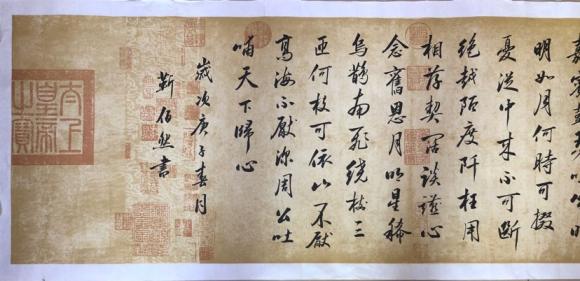 嘉賓鼓瑟吹笙明
明如月何時可掇
憂從中來不可斷
絕越陌度阡枉用
相存契闊談讌心
念舊恩月明星稀
烏鵲南飛繞樹三
匝何枝可依山不厭
高海不厭深周公吐
哺天下歸心
歲次庚子春月
靳伯然書
太上
皇帝
之寶